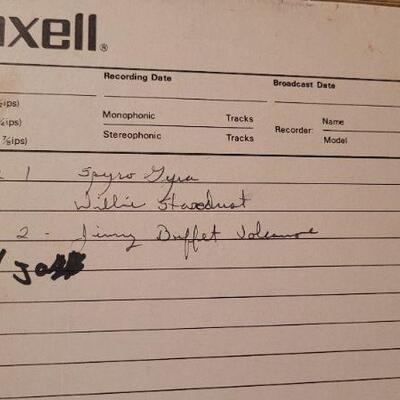 axell®
Recording Date
Broadcast Date
ips)
Monophonic Tracks
Recorder: Name
¼ips)
7/8ips)
Stereophonic Tracks
Model
1 Spyro Gyra
Willie Stardust
2 - Jimmy Buffet Volcano